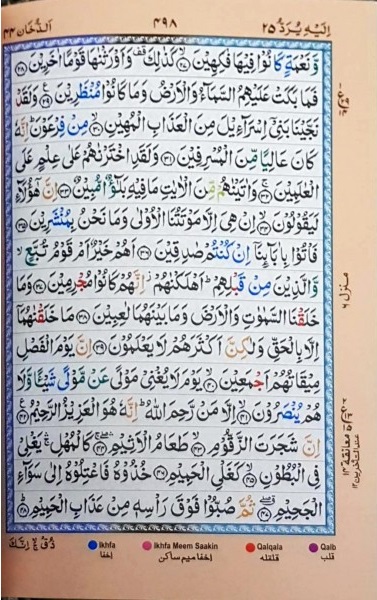 اِلَيْهِ يُرَدُّ ٢٥ ٤٩٨ اَلدُّخَان ٤٤
وَّنَعْمَةٍ كَانُوْا فِيْهَا فٰكِهِيْنَ ۙ﴿۲۷﴾ كَذٰلِكَ ۟ وَاَوْرَثْنٰهَا قَوْمًا اٰخَرِيْنَ ﴿۲۸﴾
فَمَا بَكَتْ عَلَيْهِمُ السَّمَآءُ وَالْاَرْضُ وَمَا كَانُوْا مُنْظَرِيْنَ ﴿۲۹﴾ وَلَقَدْ
نَجَّيْنَا بَنِىْٓ اِسْرَآءِيْلَ مِنَ الْعَذَابِ الْمُهِيْنِ ۙ﴿۳۰﴾ مِنْ فِرْعَوْنَ ؕ اِنَّهٗ
كَانَ عَالِيًا مِّنَ الْمُسْرِفِيْنَ ﴿۳۱﴾ وَلَقَدِ اخْتَرْنٰهُمْ عَلٰى عِلْمٍ عَلَى
الْعٰلَمِيْنَ ۚ﴿۳۲﴾ وَاٰتَيْنٰهُمْ مِّنَ الْاٰيٰتِ مَا فِيْهِ بَلٰٓؤٌا مُّبِيْنٌ ﴿۳۳﴾ اِنَّ هٰٓؤُلَآءِ
لَيَقُوْلُوْنَ ۙ﴿۳۴﴾ اِنْ هِىَ اِلَّا مَوْتَتُنَا الْاُوْلٰى وَمَا نَحْنُ بِمُنْشَرِيْنَ ﴿۳۵﴾
فَاْتُوْا بِاٰبَآئِنَاۤ اِنْ كُنْتُمْ صٰدِقِيْنَ ﴿۳۶﴾ اَهُمْ خَيْرٌ اَمْ قَوْمُ تُبَّعٍ ۙ
وَّالَّذِيْنَ مِنْ قَبْلِهِمْ ؕ اَهْلَكْنٰهُمْ ۫ اِنَّهُمْ كَانُوْا مُجْرِمِيْنَ ﴿۳۷﴾ وَمَا
خَلَقْنَا السَّمٰوٰتِ وَالْاَرْضَ وَمَا بَيْنَهُمَا لٰعِبِيْنَ ﴿۳۸﴾ مَا خَلَقْنٰهُمَاۤ
اِلَّا بِالْحَقِّ وَلٰكِنَّ اَكْثَرَهُمْ لَا يَعْلَمُوْنَ ﴿۳۹﴾ اِنَّ يَوْمَ الْفَصْلِ
مِيْقَاتُهُمْ اَجْمَعِيْنَ ۙ﴿۴۰﴾ يَوْمَ لَا يُغْنِىْ مَوْلًى عَنْ مَّوْلًى شَيْئًا وَّلَا
هُمْ يُنْصَرُوْنَ ۙ﴿۴۱﴾ اِلَّا مَنْ رَّحِمَ اللّٰهُ ؕ اِنَّهٗ هُوَ الْعَزِيْزُ الرَّحِيْمُ ﴿۴۲﴾
اِنَّ شَجَرَتَ الزَّقُّوْمِ ۙ﴿۴۳﴾ طَعَامُ الْاَثِيْمِ ۛۚ﴿۴۴﴾ كَالْمُهْلِ ۛۚ يَغْلِىْ
فِى الْبُطُوْنِ ۙ﴿۴۵﴾ كَغَلْىِ الْحَمِيْمِ ﴿۴۶﴾ خُذُوْهُ فَاعْتِلُوْهُ اِلٰى سَوَآءِ
الْجَحِيْمِ ۖ﴿۴۷﴾ ثُمَّ صُبُّوْا فَوْقَ رَاْسِهٖ مِنْ عَذَابِ الْحَمِيْمِ ؕ﴿۴۸﴾
منزل ٦
ذُقْ ۚ ۙ اِنَّكَ
Ikhfa اخفا
Ikhfa Meem Saakin اخفا میم ساکن
Qalqala قلقلہ
Qalb قلب